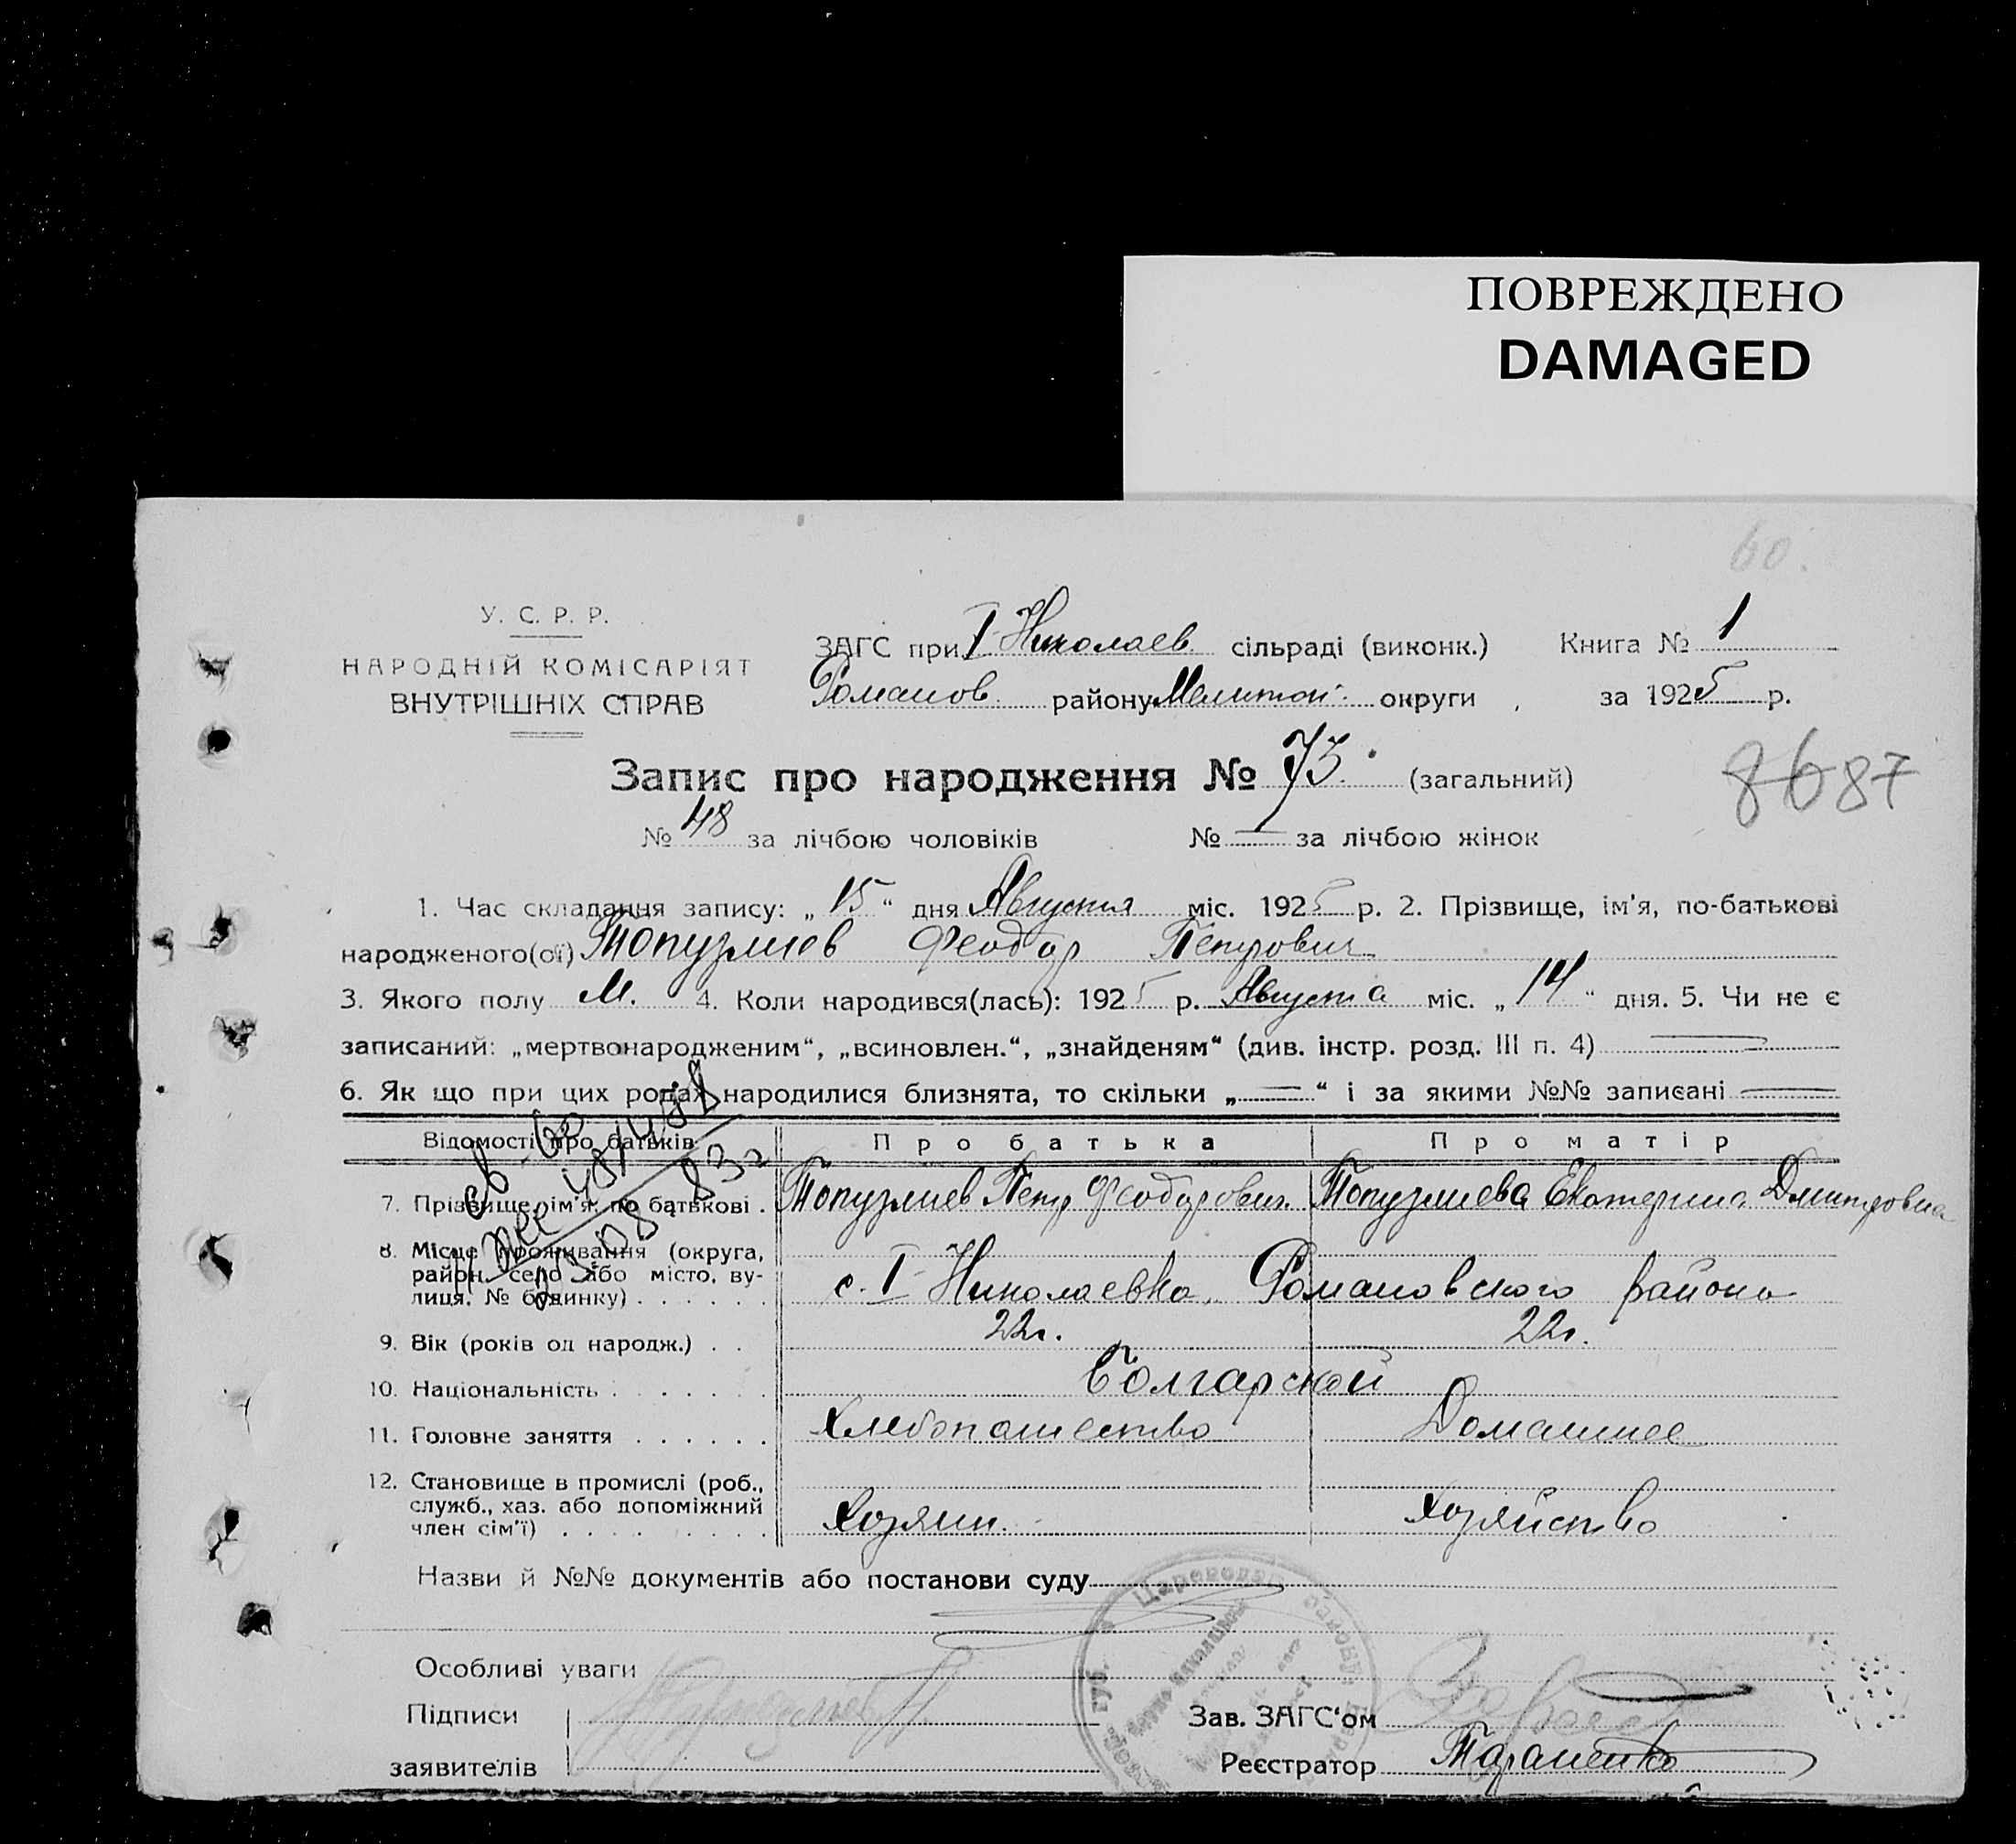 ПОВРЕЖДЕНО
DAMAGED
60.
У. С. Р. Р.
НАРОДНІЙ КОМІСАРІЯТ
ВНУТРІШНІХ СПРАВ
ЗАГС при I Николаев. сільраді (виконк.) Книга № 1
Романов. району Мелитоп. округи , за 1925 р.
Запис про народження № 73. (загальний)
8687
№ 48 за лічбою чоловіків № — за лічбою жінок
1. Час складання запису: „ 15 “ дня Августа міс. 1925 р. 2. Прізвище, ім'я, по-батькові
народженого(ої) Топузлиев Феодор Петрович
3. Якого полу М. 4. Коли народився(лась): 1925 р. Августа міс. „ 14 “ дня. 5. Чи не є
записаний: „мертвонародженим“, „всиновлен.“, „знайденям“ (див. інстр. розд. III п. 4) —
6. Як що при цих родах народилися близнята, то скільки „ — “ і за якими №№ записані —
Відомості про батьків Про батька Про матір
7. Прізвище, ім'я, по батькові . Топузлиев Петр Феодорович. Топузлиева Екатерина Дмитровна
8. Місце проживання (округа,
район, село або місто, ву-
лиця, № будинку) . . . . . . с. I Николаевка, Романовского района
9. Вік (років од народж.) . . 22 г. 22 г.
10. Національність . . . . . . . Болгарской
11. Головне заняття . . . . . . Хлебопашество Домашнее
12. Становище в промислі (роб.,
служб., хаз. або допоміжний
член сім'ї) . . . . . . . . . Хозяин. Хозяйство
Назви й №№ документів або постанови суду
Особливі уваги
Підписи
Зав. ЗАГС'ом
заявителів
Реєстратор Тараненко